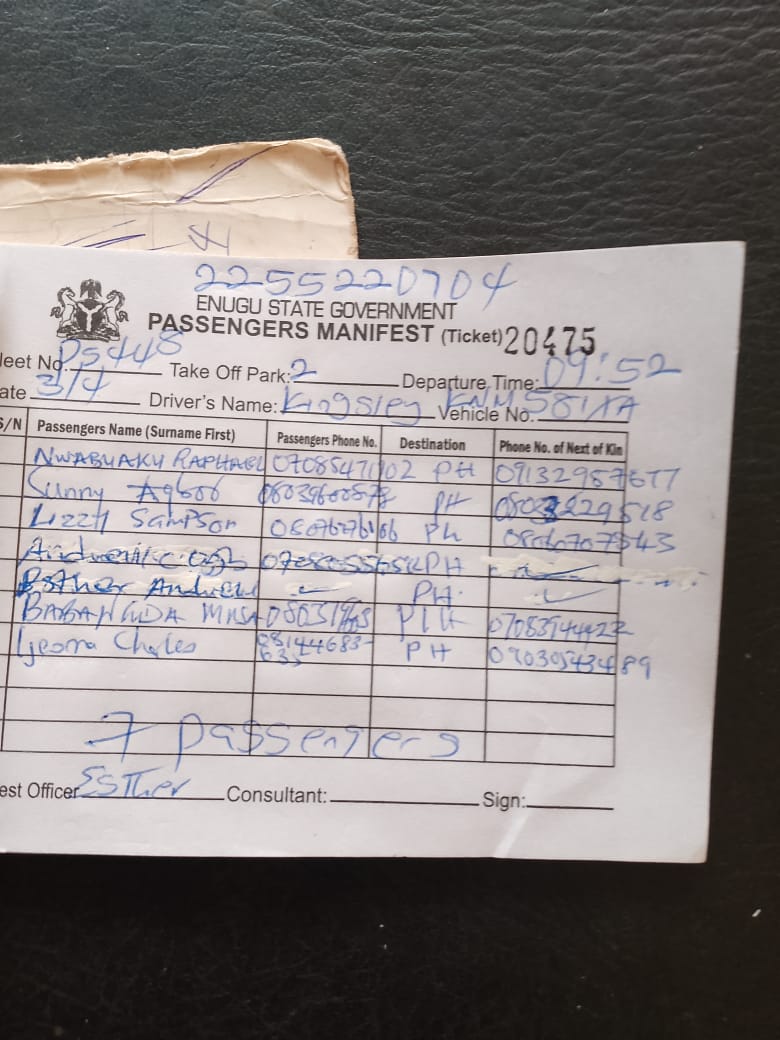 2255220704
ENUGU STATE GOVERNMENT
PASSENGERS MANIFEST (Ticket) 20475
leet No. PS448 Take Off Park: 2 Departure Time: 09:52
ate 3/4 Driver's Name: Kingsley Vehicle No. KNM581XA
S/N Passengers Name (Surname First) Passengers Phone No. Destination Phone No. of Next of Kin
NWABUAKU RAPHAEL 07085471102 PH 09132987677
Sunny Agboo PH
Lizzy Sampson PH
PH
Esther PH
BABANGIDA MUSA PH 07083944422
Ijeoma Charles 08144683-633 PH 09030543489
7 passengers
est Officer Esther Consultant: Sign: